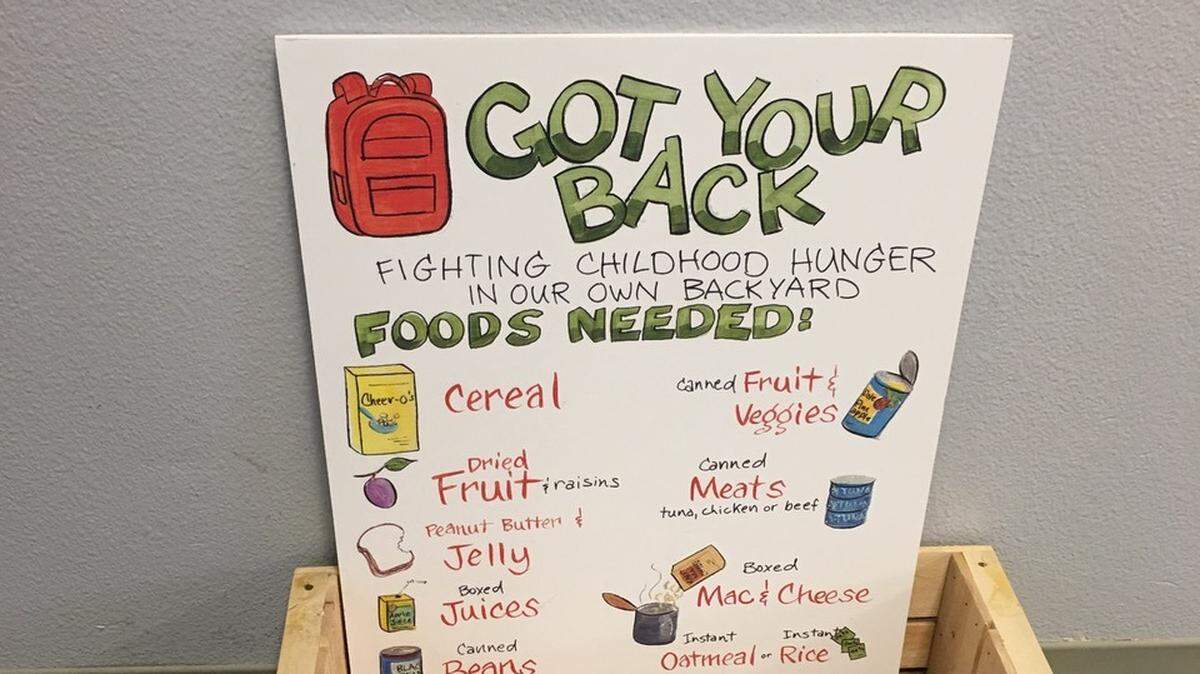 GOT YOUR
BACK
FIGHTING CHILDHOOD HUNGER
IN OUR OWN BACKYARD
FOODS NEEDED:
Cheer-o's
Cereal
Dried
Fruit & raisins
Peanut Butter &
Jelly
Boxed
Juices
Apple
Juice
Canned
Beans
BLAC
Canned Fruit &
Veggies
Dole
Pine
apple
Canned
Meats
tuna, chicken or beef
TUNA
TUNA
TUNA
Boxed
Mac & Cheese
Instant
Oatmeal or
Instant
Rice